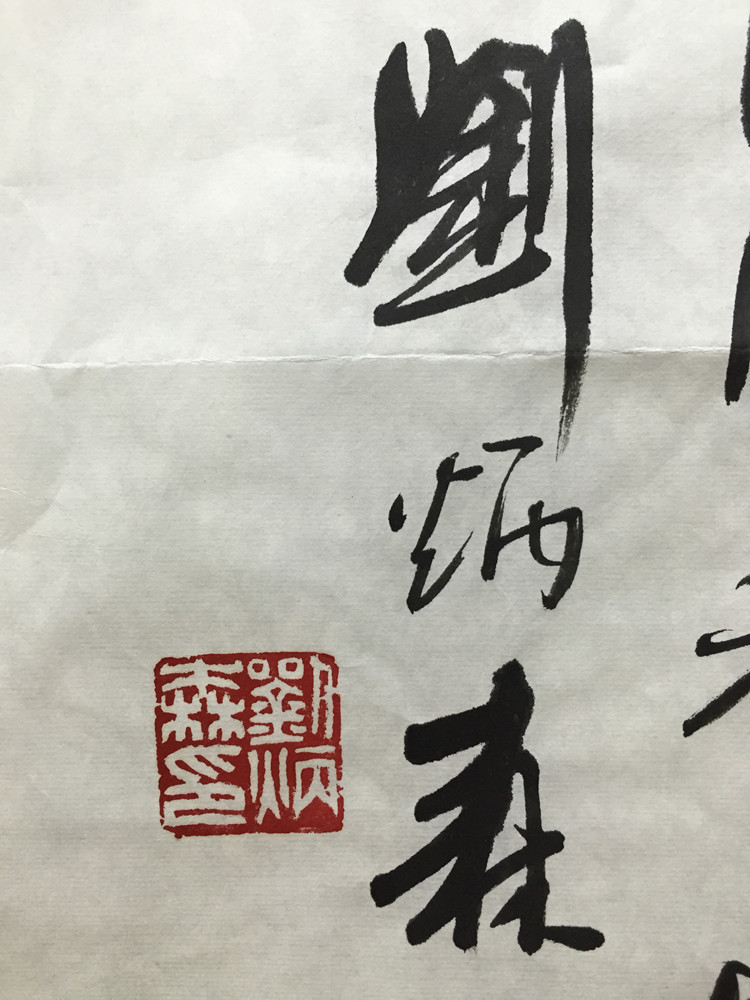 劉炳森
劉炳
森印